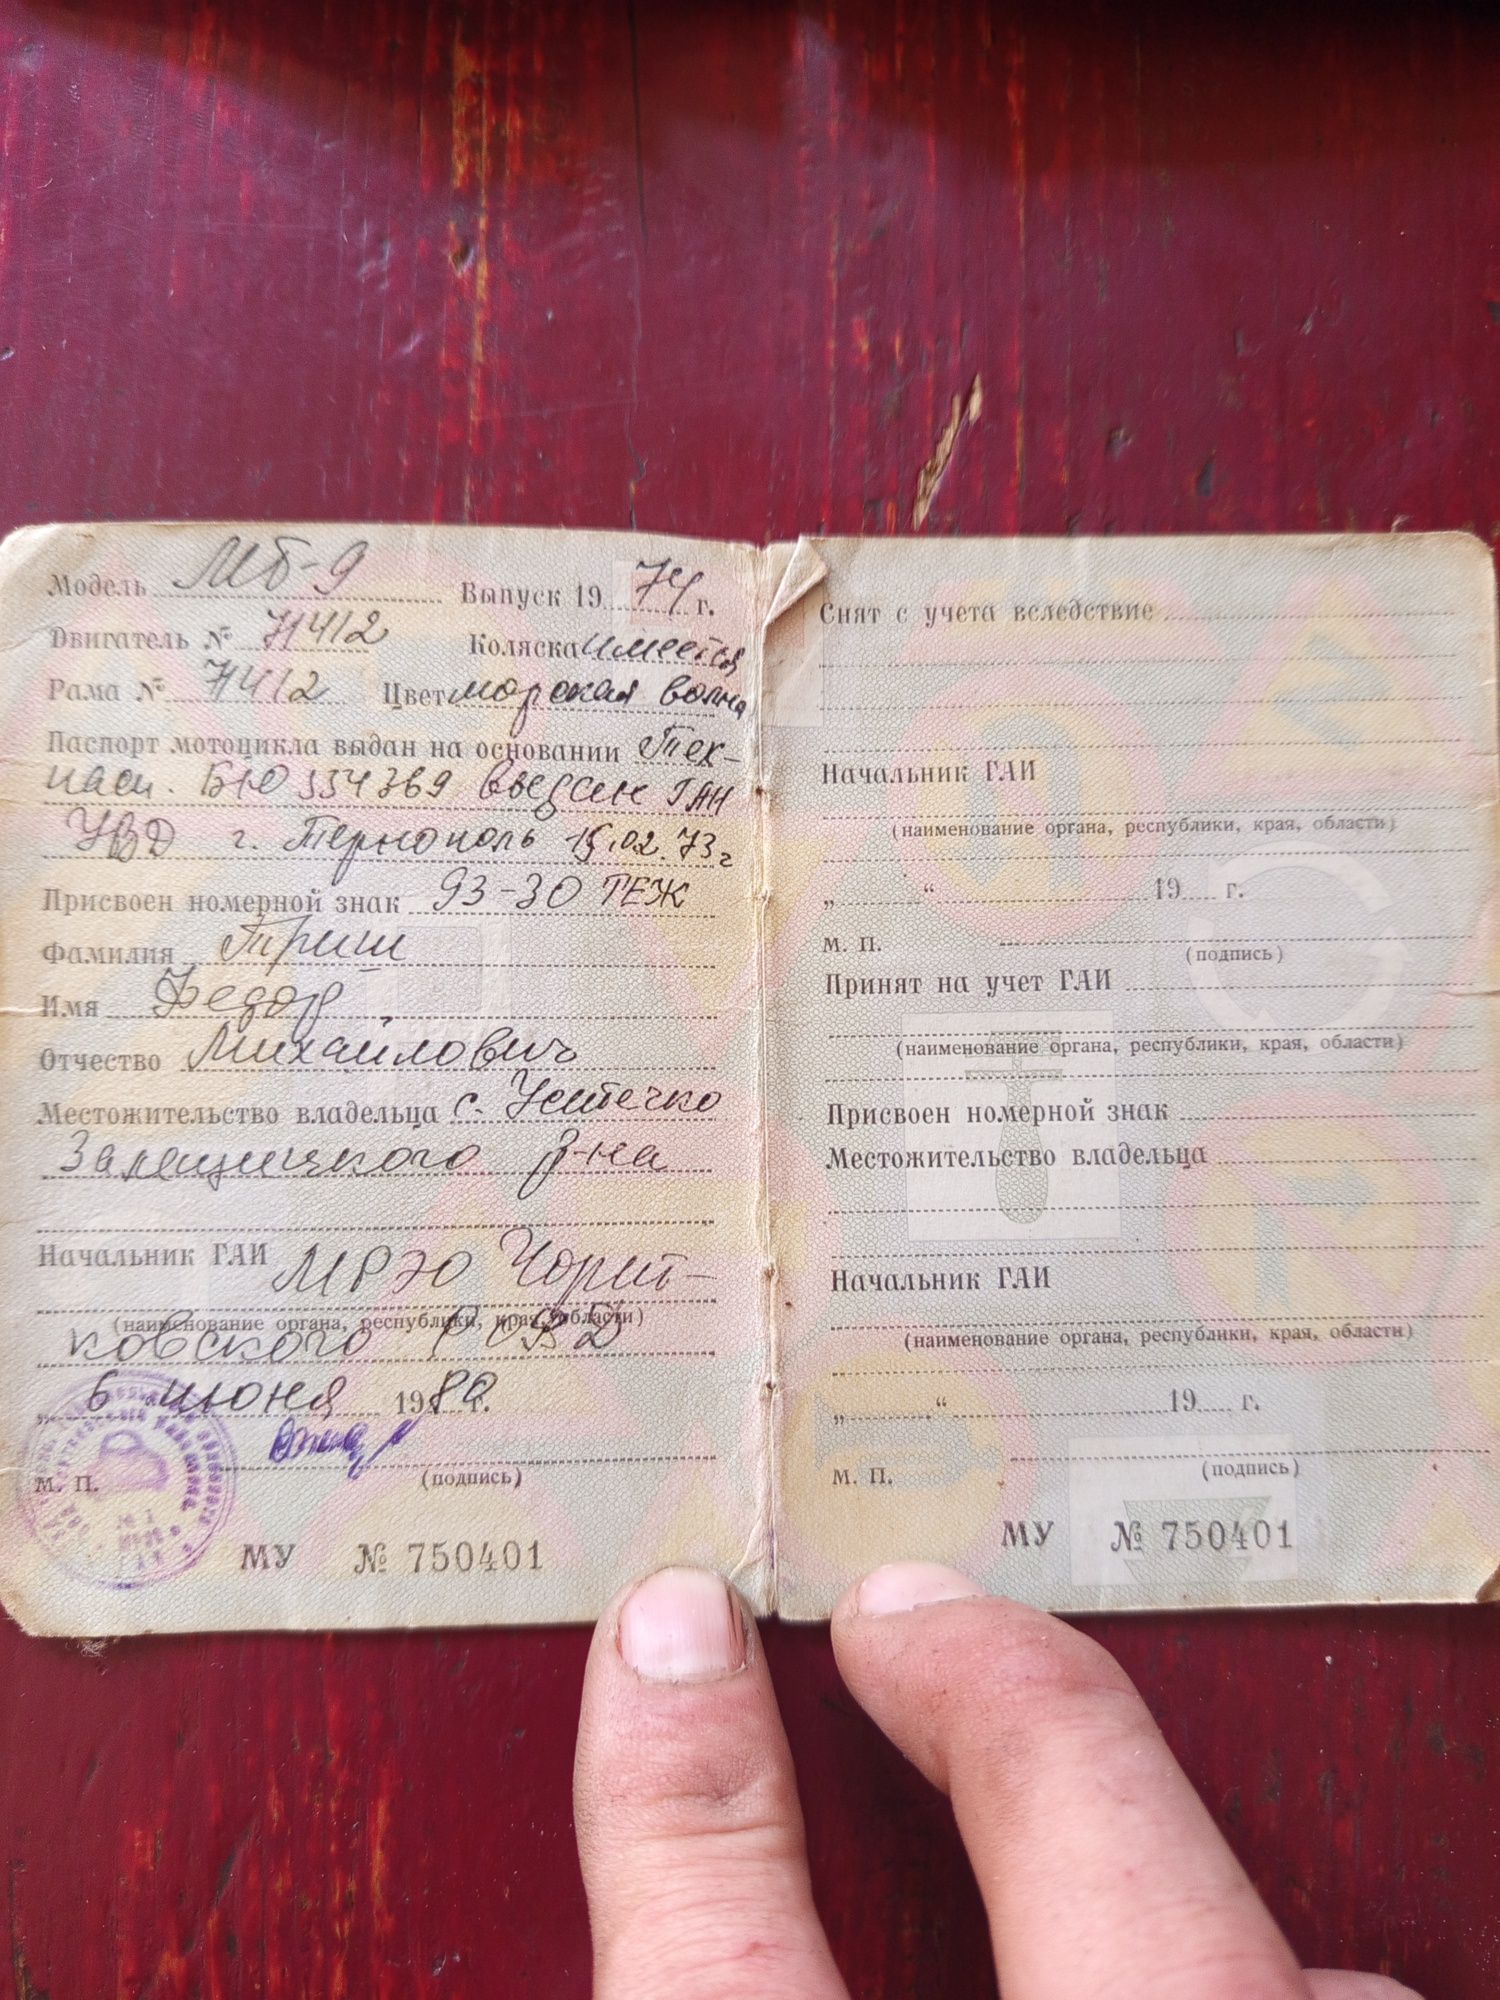 Модель МТ-9 Выпуск 1974 г.
Двигатель № 71412 Коляска имеется
Рама № 71412 Цвет морская волна
Паспорт мотоцикла выдан на основании Тех-
пасп. БЮ 334369 выдан ГАИ
УВД г. Тернополь 15.02.73 г
Присвоен номерной знак 93-30 ТЕЖ
Фамилия Триш
Имя Федор
Отчество Михайлович
Местожительство владельца с. Устечко
Залещицкого р-на
Начальник ГАИ МРЭО Чорт-
(наименование органа, республики, края, области)
ковского РОВД
„ 6 “ июня 1989 г.
М. П. (подпись)
МУ № 750401
Снят с учета вследствие
Начальник ГАИ
(наименование органа, республики, края, области)
„ “ 19 г.
М. П. (подпись)
Принят на учет ГАИ
(наименование органа, республики, края, области)
Присвоен номерной знак
Местожительство владельца
Начальник ГАИ
(наименование органа, республики, края, области)
„ “ 19 г.
М. П. (подпись)
МУ № 750401